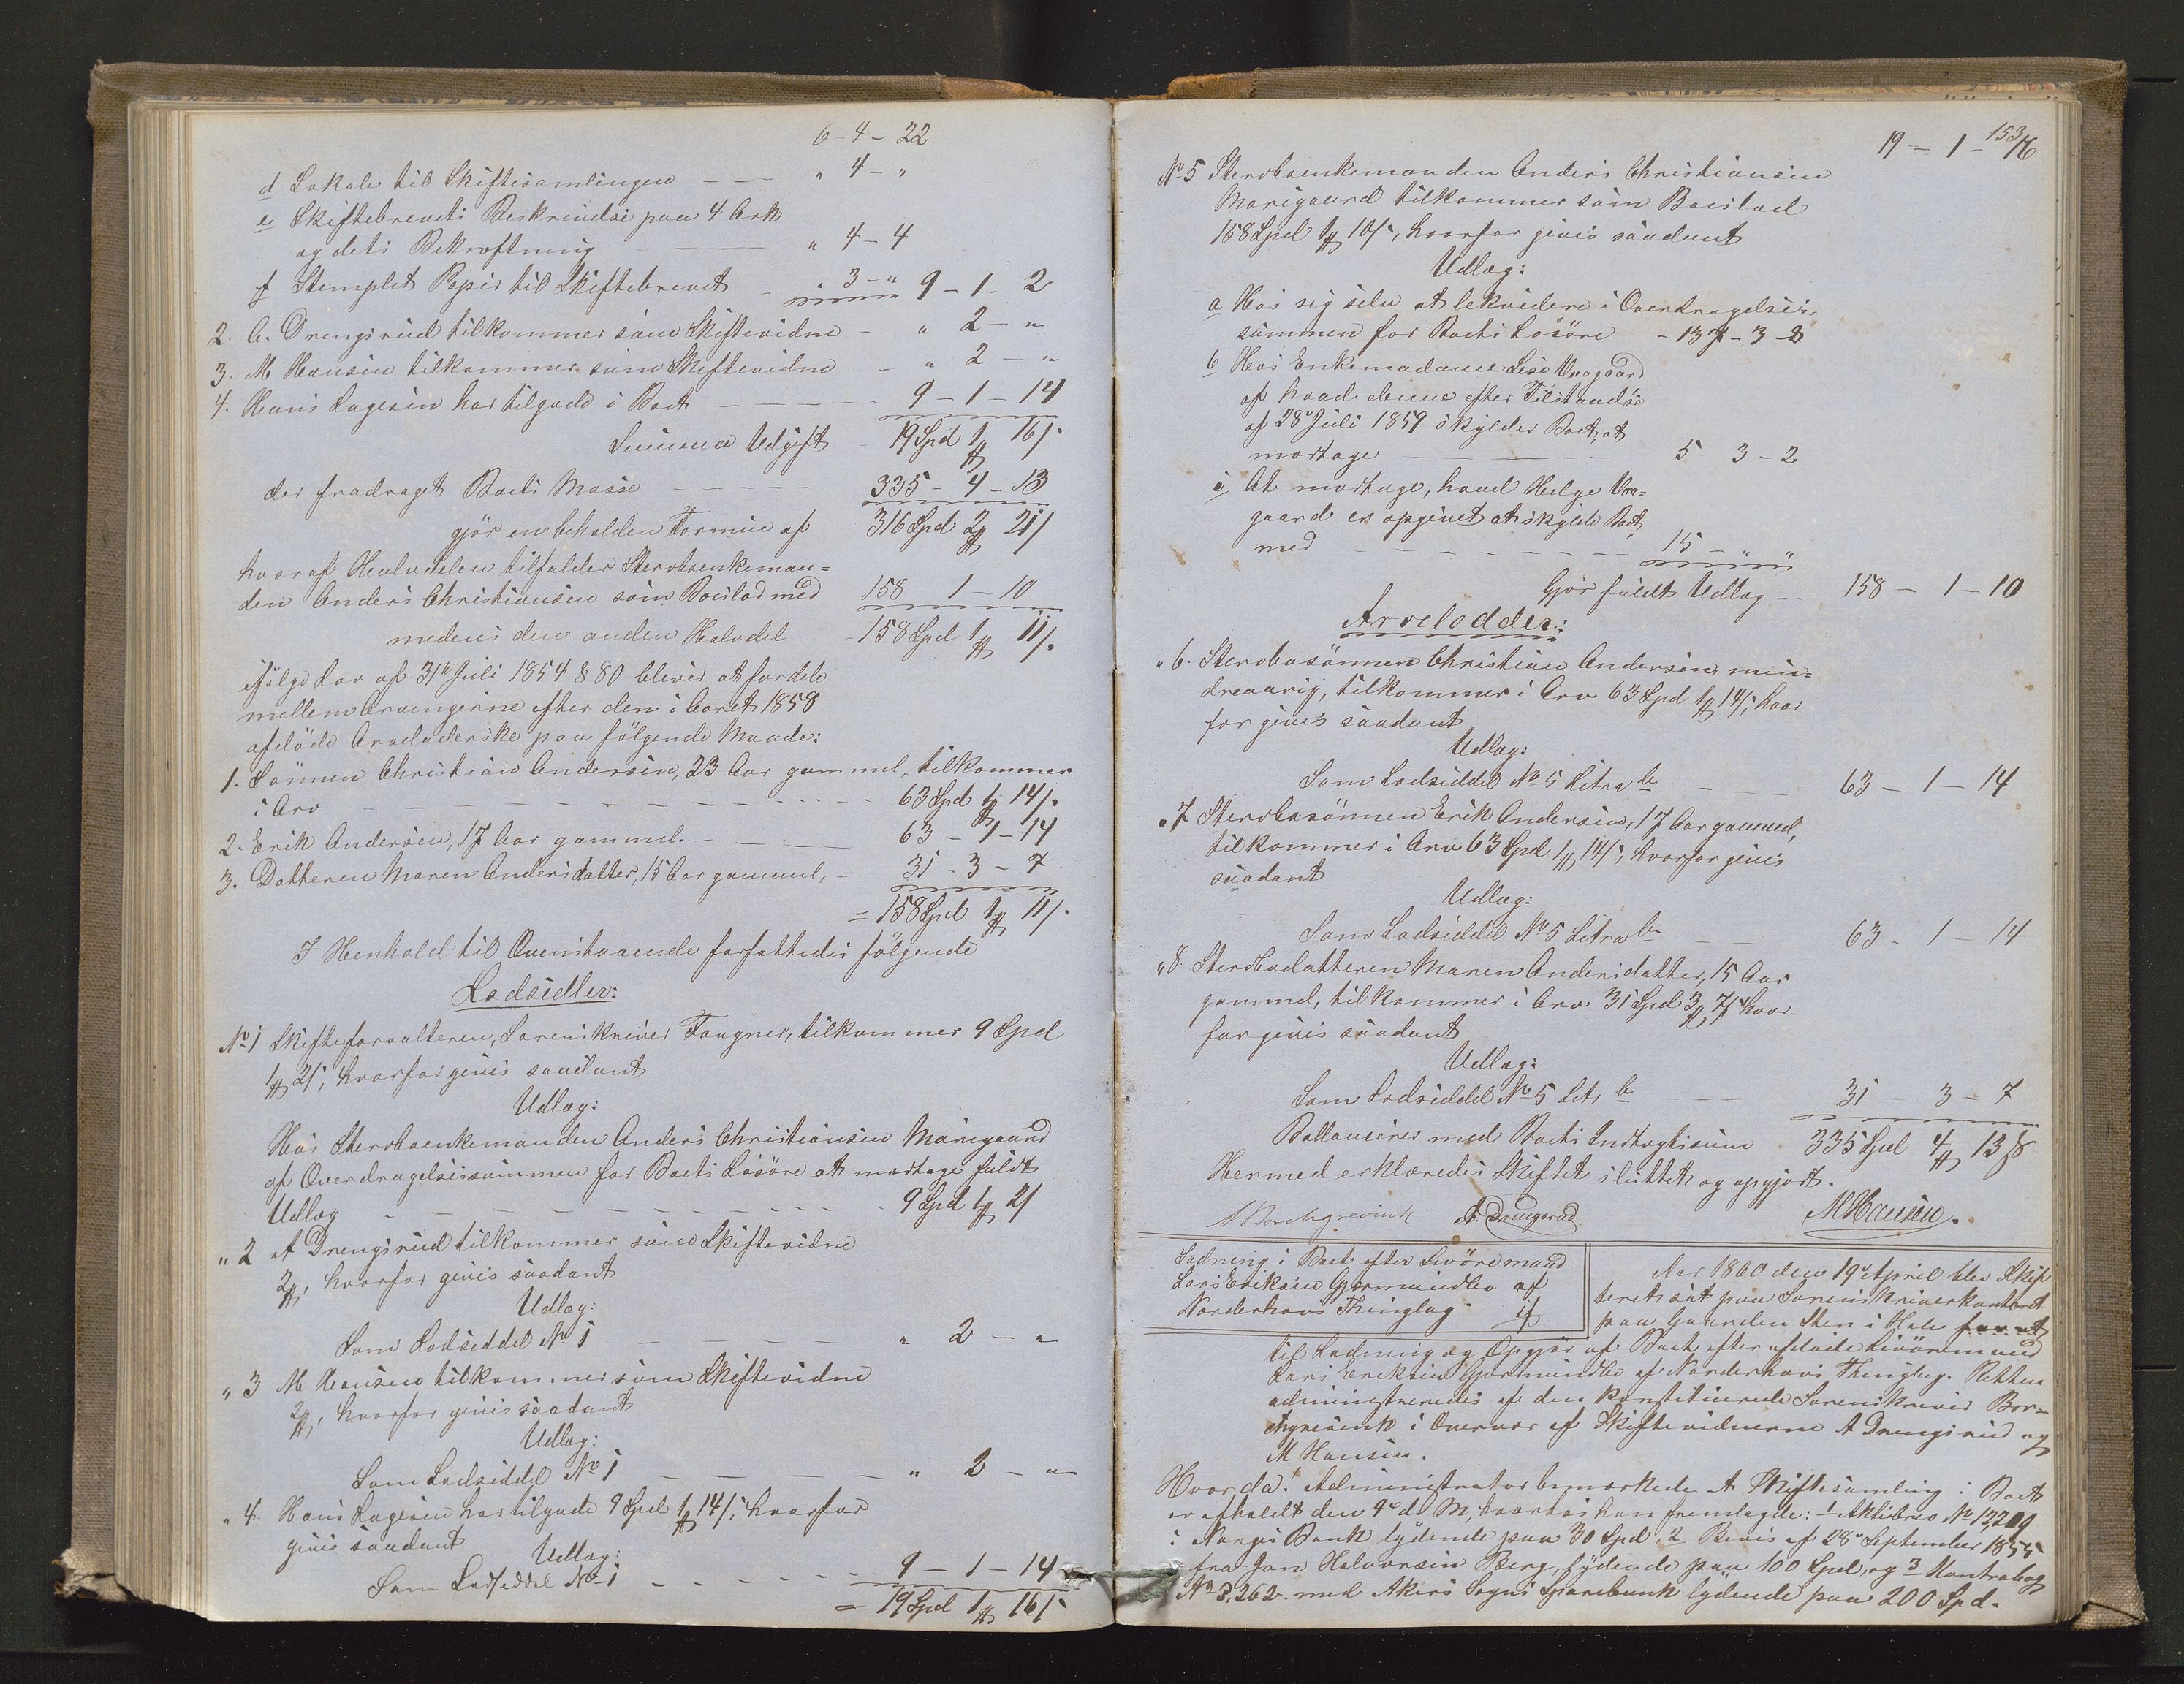 6 - 4 - 22
d Lokale til Skiftesamlingen — — " 4 - "
e Skiftebrevets Beskrivelse paa 4 Ark
og dets Bekræftning — — " 4 - 4
f Stemplet Papir til Skiftebrevet - " 3 - " 9 - 1 - 2
2. A. Drengsrud tilkommer som Skiftevidne - " 2 - "
3. M Hansen tilkommer som Skiftevidne - " 2 - "
4. Hans Lagesen har tilgode i Boet — — 9 - 1 - 14
Summa Udgift 19 Spd 1 ₰ 16 /.
der fradraget Boets Masse — — 335 - 4 - 13
gjör en beholden Formue af 316 Spd 2 ₰ 21 /
hvoraf Halvdelen tilfalder Sterboenkeman=
den Anders Christiansen som Boeslod med 158 1 - 10
medens den anden Halvdel - 158 Spd 1 ₰ 11 /.
ifölge Lov af 31te Juli 1854 § 80 bliver at fordele
mellem Arvingerne efter den i Aaret 1858
afdöde Arveladerske paa fölgende Maade:
1. Sönnen Christian Andersen, 23 Aar gammel, tilkommer
i Arv — — — 63 Spd 1 ₰ 14 /.
2. Erik Andersen, 17 Aar gammel. — — 63 - 1 - 14
3. Datteren Maren Andersdatter, 15 Aar gammel, - 31 - 3 - 7
= 158 Spd 1 ₰ 11 /.
I Henhold til Ovenstaaende forfattedes fölgende
Lodsedler:
No 1 Skifteforvalteren, Sorenskriver Faugner, tilkommer 9 Spd
1 ₰ 2 /, hvorfor gives saadant
Udlæg:
Hos Sterboenkemanden Anders Christiansen Moregaard
af Overdragelsessummen for Boets Lösöre at modtage fuldt
Udlæg - - - 9 Spd 1 ₰ 2 /
" 2 A Drengsrud tilkommer som Skiftevidne
2 ₰, hvorfor gives saadant
Udlæg:
Som Lodseddel No 1 — — " 2 - "
" 3 M Hansen tilkommer som Skiftevidne
2 ₰, hvorfor gives saadant
Udlæg:
Som Lodseddel No 1 — — " 2 - "
" 4. Hans Lagesen har tilgode 9 Spd 1 ₰ 14 /, hvorfor
gives saadant
Udlæg:
Som Lodseddel No 1 - - - 9 - 1 - 14
= 19 Spd 1 ₰ 16 /.
153
19 - 1 - 16
No 5 Sterboenkemanden Anders Christiansen
Moregaard tilkommer som Boeslod
158 Spd 1 ₰ 10 /, hvorfor gives saadant
Udlæg:
a Hos sig selv at lekvidere i Overdragelses-
summen for Boets Lösöre - 137 - 3 - 8
b Hos Enkemadame Lise
af hvad denne efter Tilstaaelse
af 28de Juli 1859 skylder Boet, at
modtage — — 5 3 - 2
c At modtage, hvad Helge
gaard er opgivet at skylde Boet,
med — — 15 - " "
Gjör fuldt Udlæg - - 158 - 1 - 10
Arvelodder:
" 6. Sterbosönnen Christian Andersen, min=
dreaarig, tilkommer i Arv 63 Spd 1 ₰ 14 /, hvor
for gives saadant
Udlæg:
Som Lodseddel No 5 Litra a — — 63 - 1 - 14
" 7 Sterbosönnen Erik Andersen, 17 Aar gammel,
tilkommer i Arv 63 Spd 1 ₰ 14 /, hvorfor gives
saadant
Udlæg:
Som Lodseddel No 5 Litra a — — 63 - 1 - 14
" 8. Sterbodatteren Maren Andersdatter, 15 Aar
gammel, tilkommer i Arv 31 Spd 3 ₰ 7 /, hvor-
for gives saadant
Udlæg:
Som Lodseddel No 5 Litr a — — 31 - 3 - 7
Ballancerer med Boets Indtægtssum 335 Spd 4 ₰ 13 ß
Hermed erklæredes Skiftet sluttet og opgjort.
Borchgrevink A. Drengsrud. M Hansen.
Lodning i Boet efter Livöremand
Lars Eriksen Gjermundbo af
Norderhovs Thinglag.
Aar 1860 den 19de April blev Skif
teret sat paa Sorenskriverkontoret
paa Gaarden Sten i Hole for at
til Lodning og Opgjör af Boet efter afdöde Livöremand
Lars Eriksen Gjermundbo af Norderhovs Thinglag. Retten
administreredes af den konstituerede Sorenskriver Bor=
chgrevink i Overvær af Skiftevidnerne A Drengsrud og
M Hansen.
Hvor da: Administrator bemærkede At Skiftesamling i Boet
er afholdt den 9de d. M, hvorhos han fremlagde: 1 Aktiebrev No 17,209
i Norges Bank lydende paa 30 Spd, 2 Bevis af 28de September 1855
fra Jon Halvorsen Berg, lydende paa 100 Spd, og 3 Kontrabog
No 3,262. med Akers Sogns Sparebank lydende paa 200 Spd.